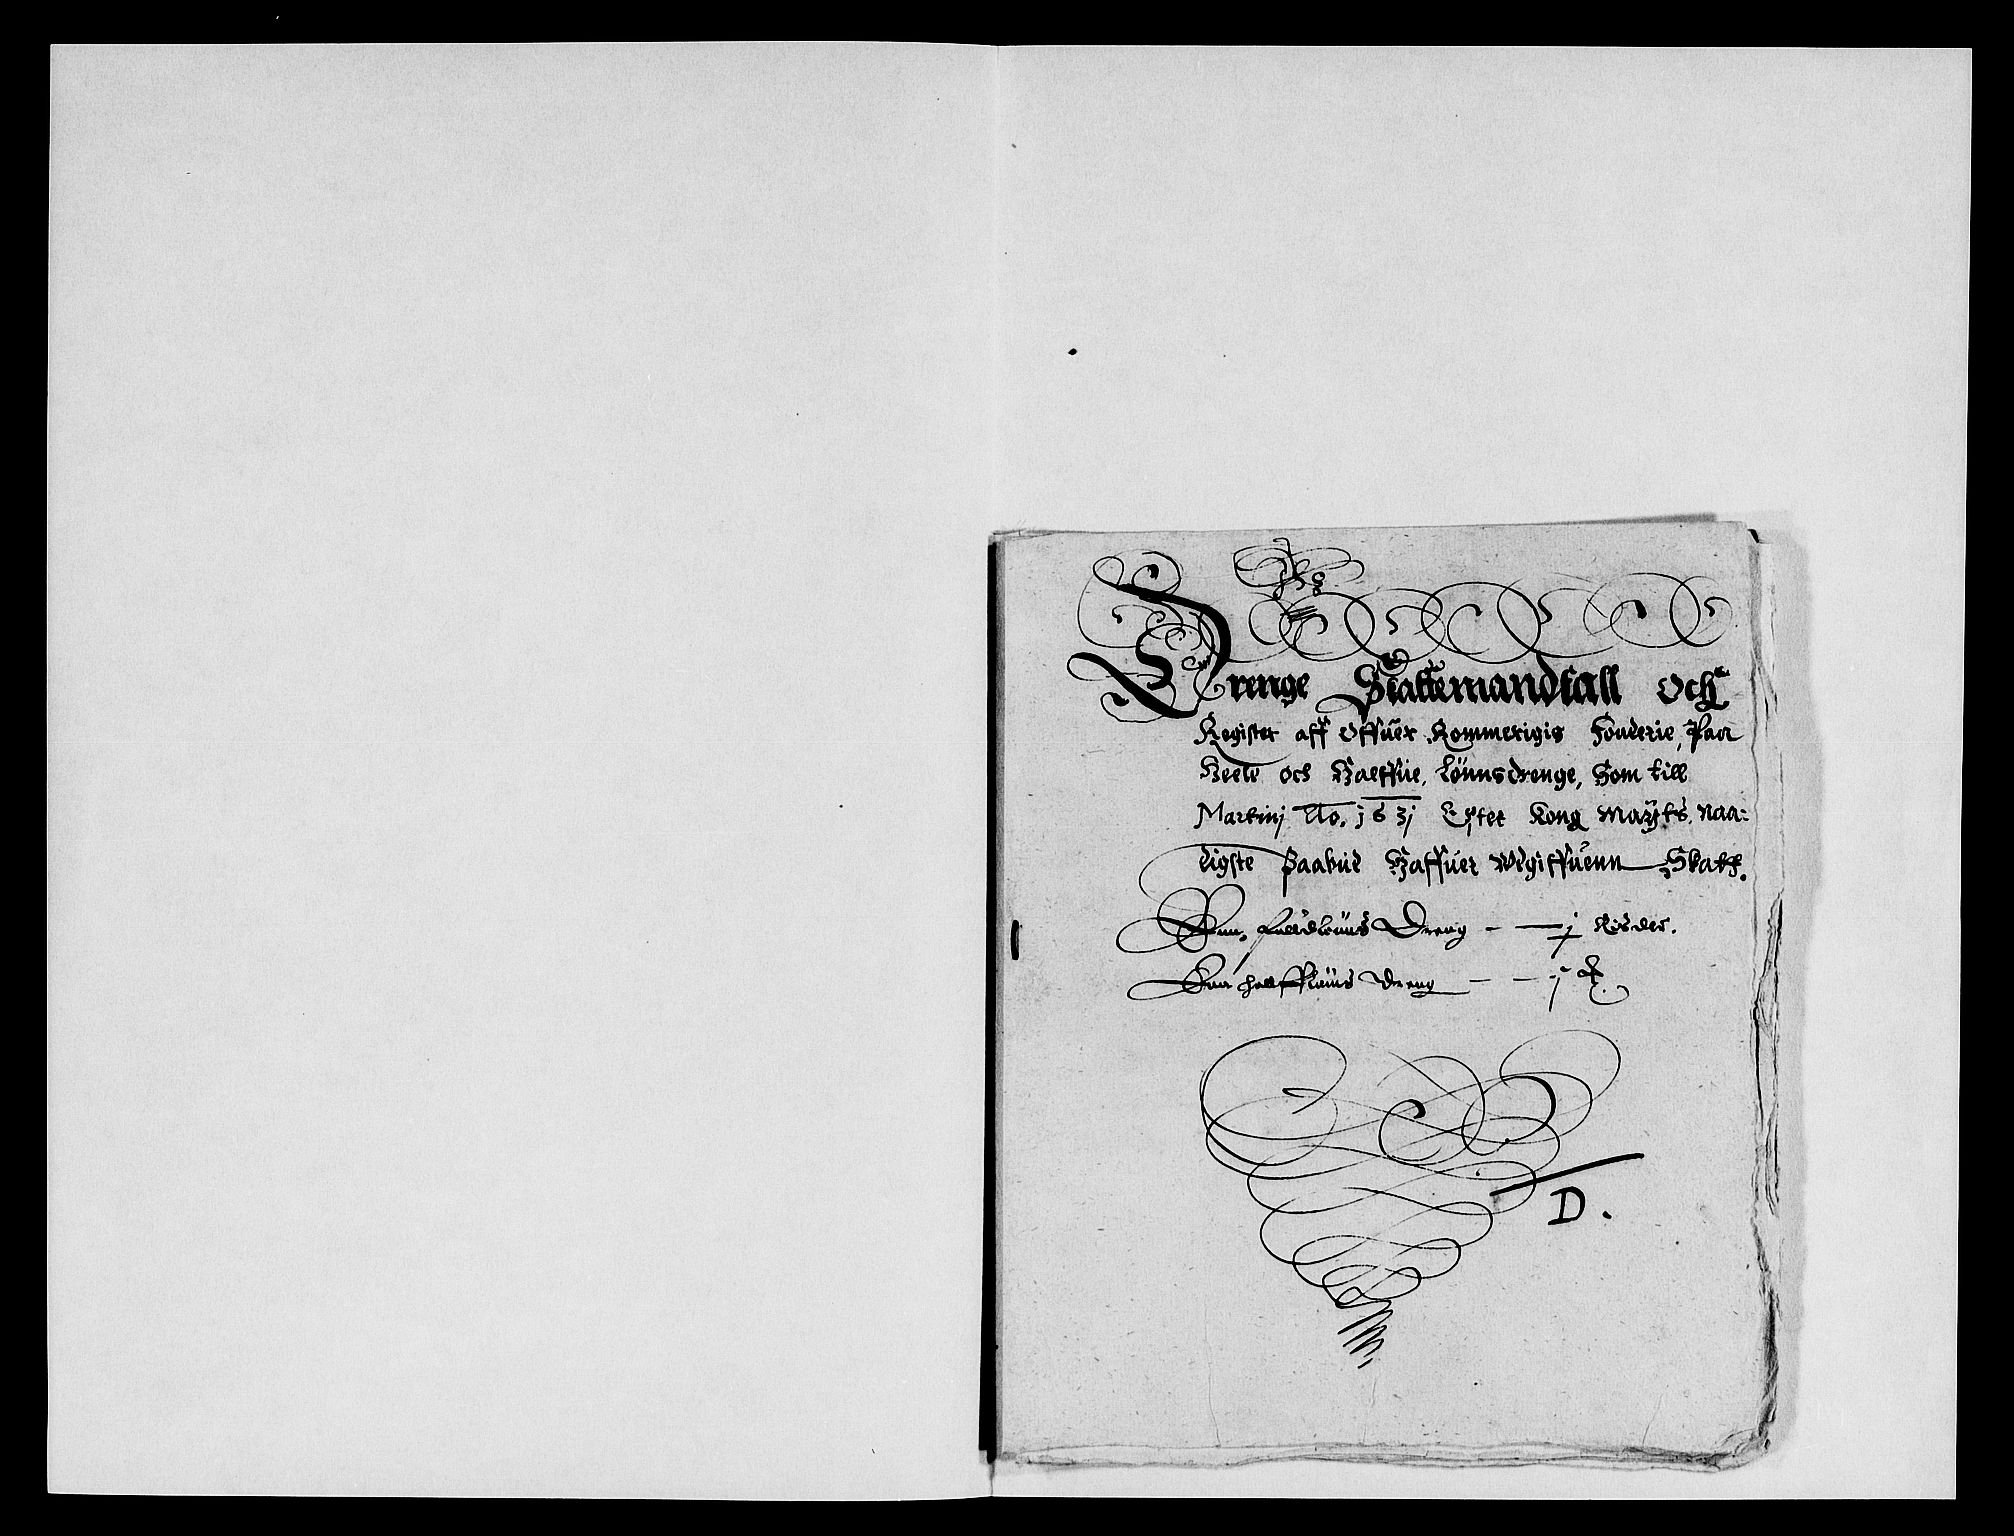 Drenge Skattemandtall Och
Register aff Offuer Rommerigis Fouderie, Paa
Heele och Halffue, Lönnsdrenge, Som till
Martinj Ao. j63j Efter Kong Maÿts. naa:
digste Paabud Haffuer Udgiffuenn Skatt.
Enn, fuldlöns Dreng – — j Rixdlr.
Enn halfflöns Dreng – – j
D.